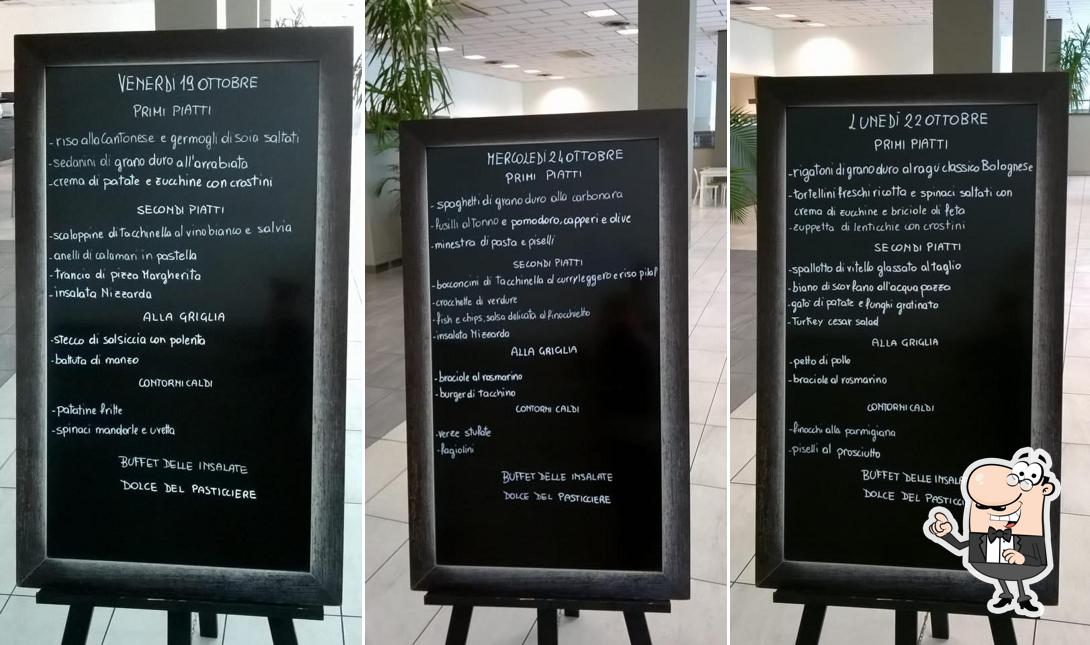 VENERDÌ 19 OTTOBRE
PRIMI PIATTI
-riso alla Cantonese e germogli di soia saltati
-sedanini di grano duro all'arrabiata
-crema di patate e zucchine con crostini
SECONDI PIATTI
-scaloppine di Tacchinella al vino bianco e salvia
-anelli di calamari in pastella
-trancio di pizza Margherita
-insalata Nizzarda
ALLA GRIGLIA
-stecco di salsiccia con polenta
-battuta di manzo
CONTORNI CALDI
-patatine fritte
-spinaci mandorle e uvetta
BUFFET DELLE INSALATE
DOLCE DEL PASTICCIERE
MERCOLEDÌ 24 OTTOBRE
PRIMI PIATTI
-spaghetti di grano duro alla carbonara
-fusilli al Tonno e pomodoro, capperi e olive
-minestra di pasta e piselli
SECONDI PIATTI
-bocconcini di Tacchinella al curry leggero e riso pilaf
-crocchette di verdure
-fish e chips, salsa delicata al finocchietto
-insalata Nizzarda
ALLA GRIGLIA
-braciole al rosmarino
-burger di Tacchino
CONTORNI CALDI
-verze stufate
-fagiolini
BUFFET DELLE INSALATE
DOLCE DEL PASTICCIERE
LUNEDÌ 22 OTTOBRE
PRIMI PIATTI
-rigatoni di grano duro al ragù classico Bolognese
-tortellini freschi ricotta e spinaci saltati con
crema di zucchine e briciole di feta
-zuppetta di lenticchie con crostini
SECONDI PIATTI
-spallotto di vitello glassato al taglio
-biano di scorfano all'acqua pazza
-gatò di patate e funghi gratinato
-Turkey cesar salad
ALLA GRIGLIA
-petto di pollo
-braciole al rosmarino
CONTORNI CALDI
-finocchi alla parmigiana
-piselli al prosciutto
BUFFET DELLE INSALA
DOLCE DEL PASTICCI